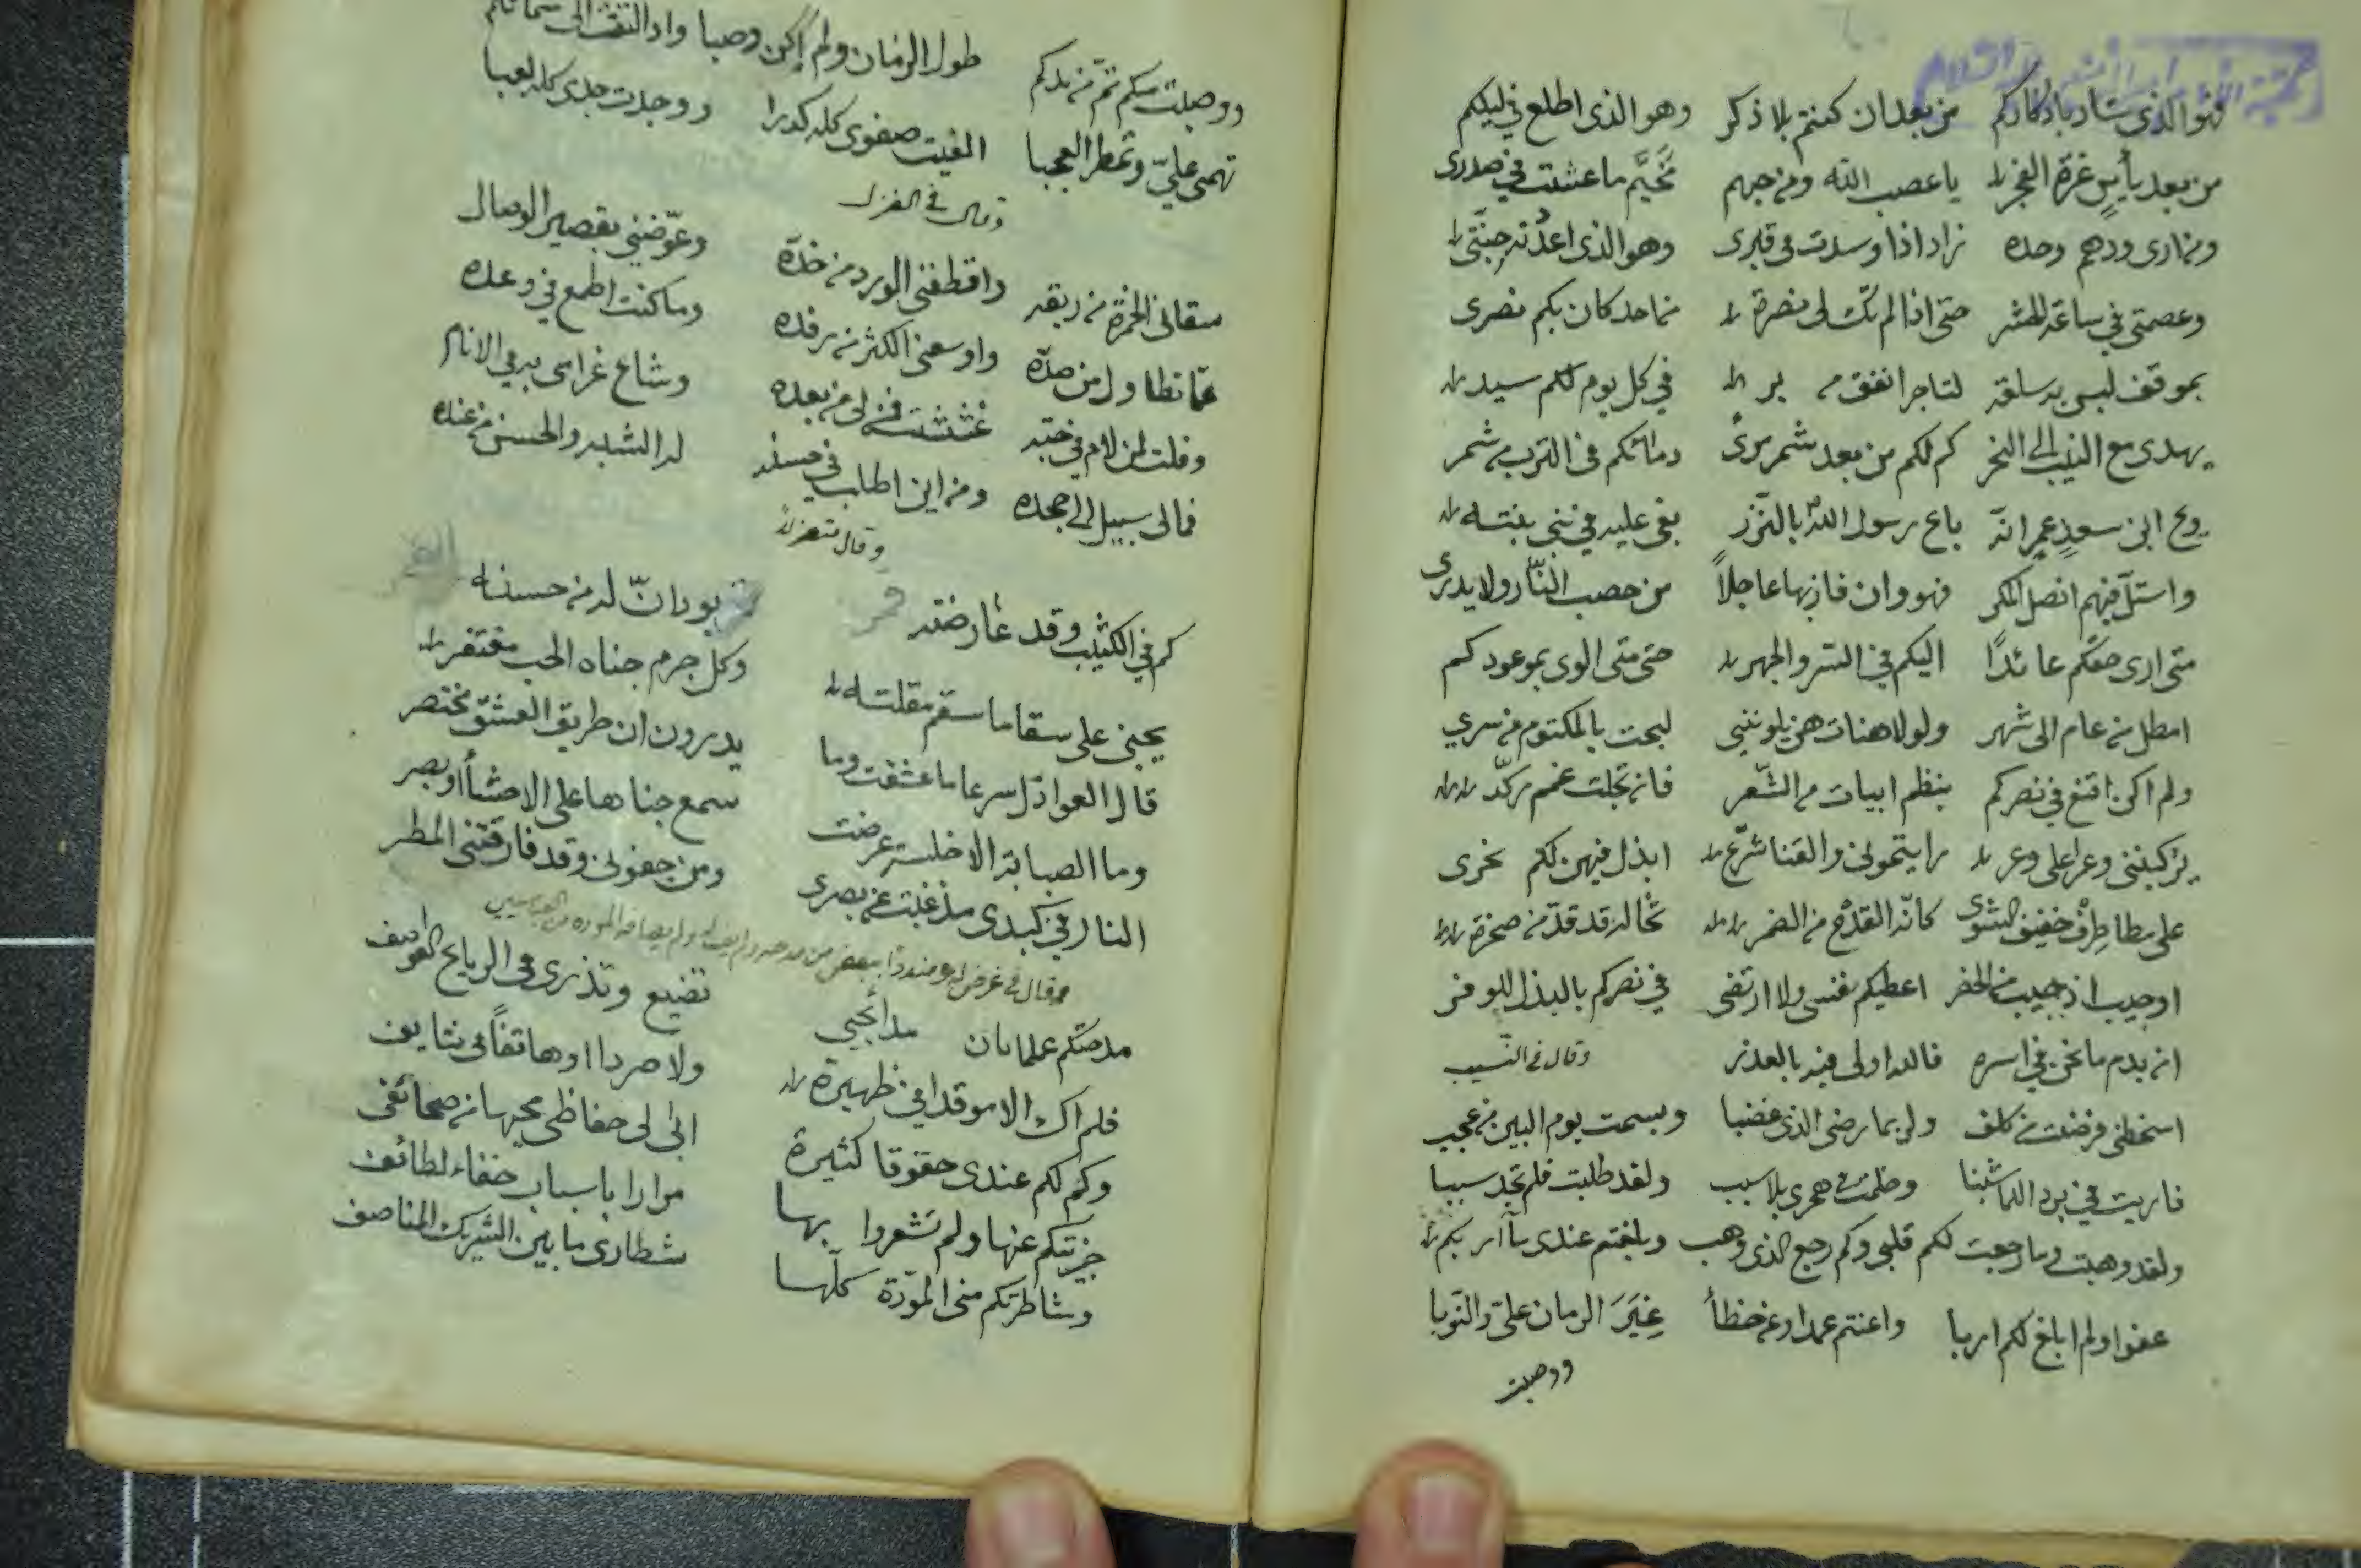 فهو الذي شاد باذكاركم من بعد ان كنتم بلا ذكر وهو الذي اطلع في ليلكم
من بعد يأس غرة الفجر يا عصب الله ومن حبهم مخيّم ما عشت في صدري
ومن ارى ودهم وحده زاد اذا وسدت في قبري وهو الذي اعدته جنتي
وعصمتي في ساعة الحشر حتى اذا لم تك لي نصرة من احد كان بكم نصري
بموقف ليس به سلعة لتاجر انفق من بر في كل يوم لكم سيد
يهدى مع النيب الى النحر كم لكم من بعد شمر مرى دمائكم في الترب من شمر
ويح ابن سعد عمر انه باع رسول الله بالنزر بغى عليه في بني بنته
واستل فيهم انصل المكر فهو وان فاز بها عاجلاً من حصب النار ولا يدري
متى ارى حقكم عائدًا اليكم في السر والجهر حتى متى الوى بموعودكم
امطل من عام الى شهر ولولا هنات هن يلوينني لبحت بالمكتوم من سري
ولم اكن اقنع في نصركم بنظم ابيات من الشعر فان تجلت غمم ركّد
يركبنني وعرا على وعر رايتموني والقنا شرّع ابذل فيهن لكم نحري
على مطا طرف خفيف الشوى كانّه القدح من الضمر تخاله قد قدّ من صخرة
او جيب اذ جيب من الحضر اعطيكم نفسي ولا ارتضي في نصركم بالبذل للوفر
ان يدم ما نحن في اسره فالله اولى فيه بالعذر وقال في النسيب
اسخطني فرضيت من كلف ولربما رضي الذي غضبا وبسمت يوم البين من عجب
فاريت في برد اللما شنبا وظلمت في هجري بلا سبب ولقد طلبت فلم تجد سببا
ولقد وهبت وما رجعت لكم قلبي وكم رجع الذي وهب وبلغتم عندي مآربكم
عفوا ولم ابلغ لكم اربا واعنتم عمدا وعن خطأ غِيَرَ الزمان عليّ والنوبا
ووصلت
ووصلت منكم ثمّ من يدكم طول الزمان ولم اكن وصبا واذا التفت الى
تهمي عليّ وتمطر العجبا الفيت صفوي كله كدرا ووجدت جدي كله لعبا
وقال في الغزل
سقاني الخمرة من ريقه واقطفني الورد من خدّه وعوّضني بقصير الوصال
عمّا تطاول من صدّه واوسعني الكثر من رفده وما كنت اطمع في وعده
وقلت لمن لام في حبّه غششت فمن لي من بعده وشاع غرامي به في الانام
فمالي سبيل الى جحده ومن اين اطلب في حسنه له الشبه والحسن من عنده
وقال متغزلا
كم في الكثيب وقد عارضته قمر يود انّ له من حسنه
يجني على سقاما سقم مقلته وكل جرم جناه الحب مغتفر
قال العواذل سرعا ما عشقت وما يدرون ان طريق العشق مختصر
وما الصبابة الا خلسة عرضت سمع جناها على الاحشأ او بصر
النار في كبدي مذ غبت عن بصري ومن جفوني وقد فارقتني المطر
وقال في غرض له
مدحتكم علما بان مدائحي تضيع وتذرى في الرياح العواصف
فلم اك الا موقدا في ظهيرة ولا صردا او هاتفا في نتايف
وكم لكم عندي حقوقا كثيرة ابى لي حفاظي محيها من صحائفي
جزيتكم عنها ولم تشعروا بها مرارا باسباب خفاء لطائف
وشاطرتكم مني المودّة كلّها شطاري ما بين الشريك المناصف